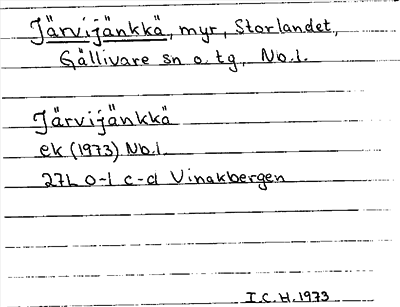 Järvijänkkä, myr, Storlandet,
Gällivare sn o. tg., Nb.l.
Järvijänkkä
ek (1973) Nb.l
27L 0-1 c-d Vinakbergen
I.C.H. 1973